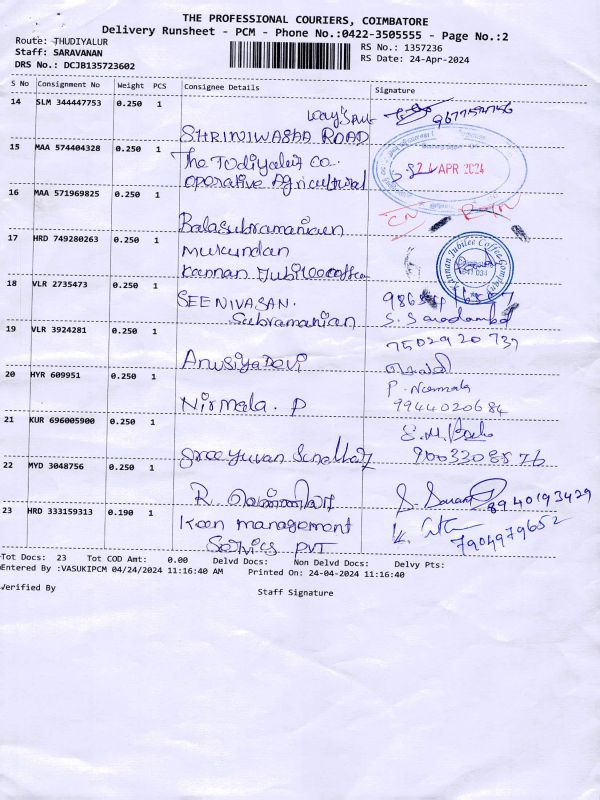 THE PROFESSIONAL COURIERS, COIMBATORE
Delivery Runsheet - PCM - Phone No.:0422-3505555 - Page No.:2
Route: THUDIYALUR
RS No.: 1357236
Staff: SARAVANAN
RS Date: 24-Apr-2024
DRS No.: DCJB135723602
S No Consignment No Weight PCS Consignee Details Signature
14 SLM 344447753 0.250 1
SHRINIWASAA ROAD
15 MAA 574404328 0.250 1 The Todiyalur Co.
operative Agricultural
24 APR 2024
16 MAA 571969825 0.250 1
Balasubramanian
17 HRD 749280263 0.250 1 Mukundan
Kannan Jubilee Coffee
Kannan Jubilee Coffee Company
641 034
18 VLR 2735473 0.250 1 SEENIVASAN.
Subramanian
19 VLR 3924281 0.250 1 7502920737
Anusiya Devi
20 HYR 609951 0.250 1 P. Nirmala
Nirmala. P 9944020684
21 KUR 696005900 0.250 1
Sree Yuvan 9003308576
22 MYD 3048756 0.250 1
R. 8940193429
23 HRD 333159313 0.190 1 Keen management
Services PVT 7904979652
Tot Docs: 23 Tot COD Amt: 0.00 Delvd Docs: Non Delvd Docs: Delvy Pts:
Entered By :VASUKIPCM 04/24/2024 11:16:40 AM Printed On: 24-04-2024 11:16:40
Verified By Staff Signature